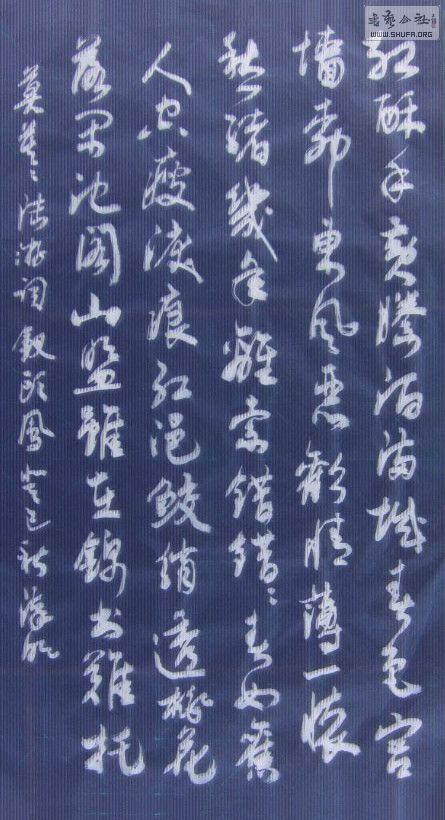 红酥手黄縢酒满城春色宫
墙柳东风恶歡情薄一懐
愁绪幾年離索错错〻春如舊
人空瘦泪痕红浥鲛绡透桃花
落闲池阁山盟雖在锦书難托
莫莫〻陆游词钗头凤 癸巳秋
书艺公社
WWW.SHUFA.ORG